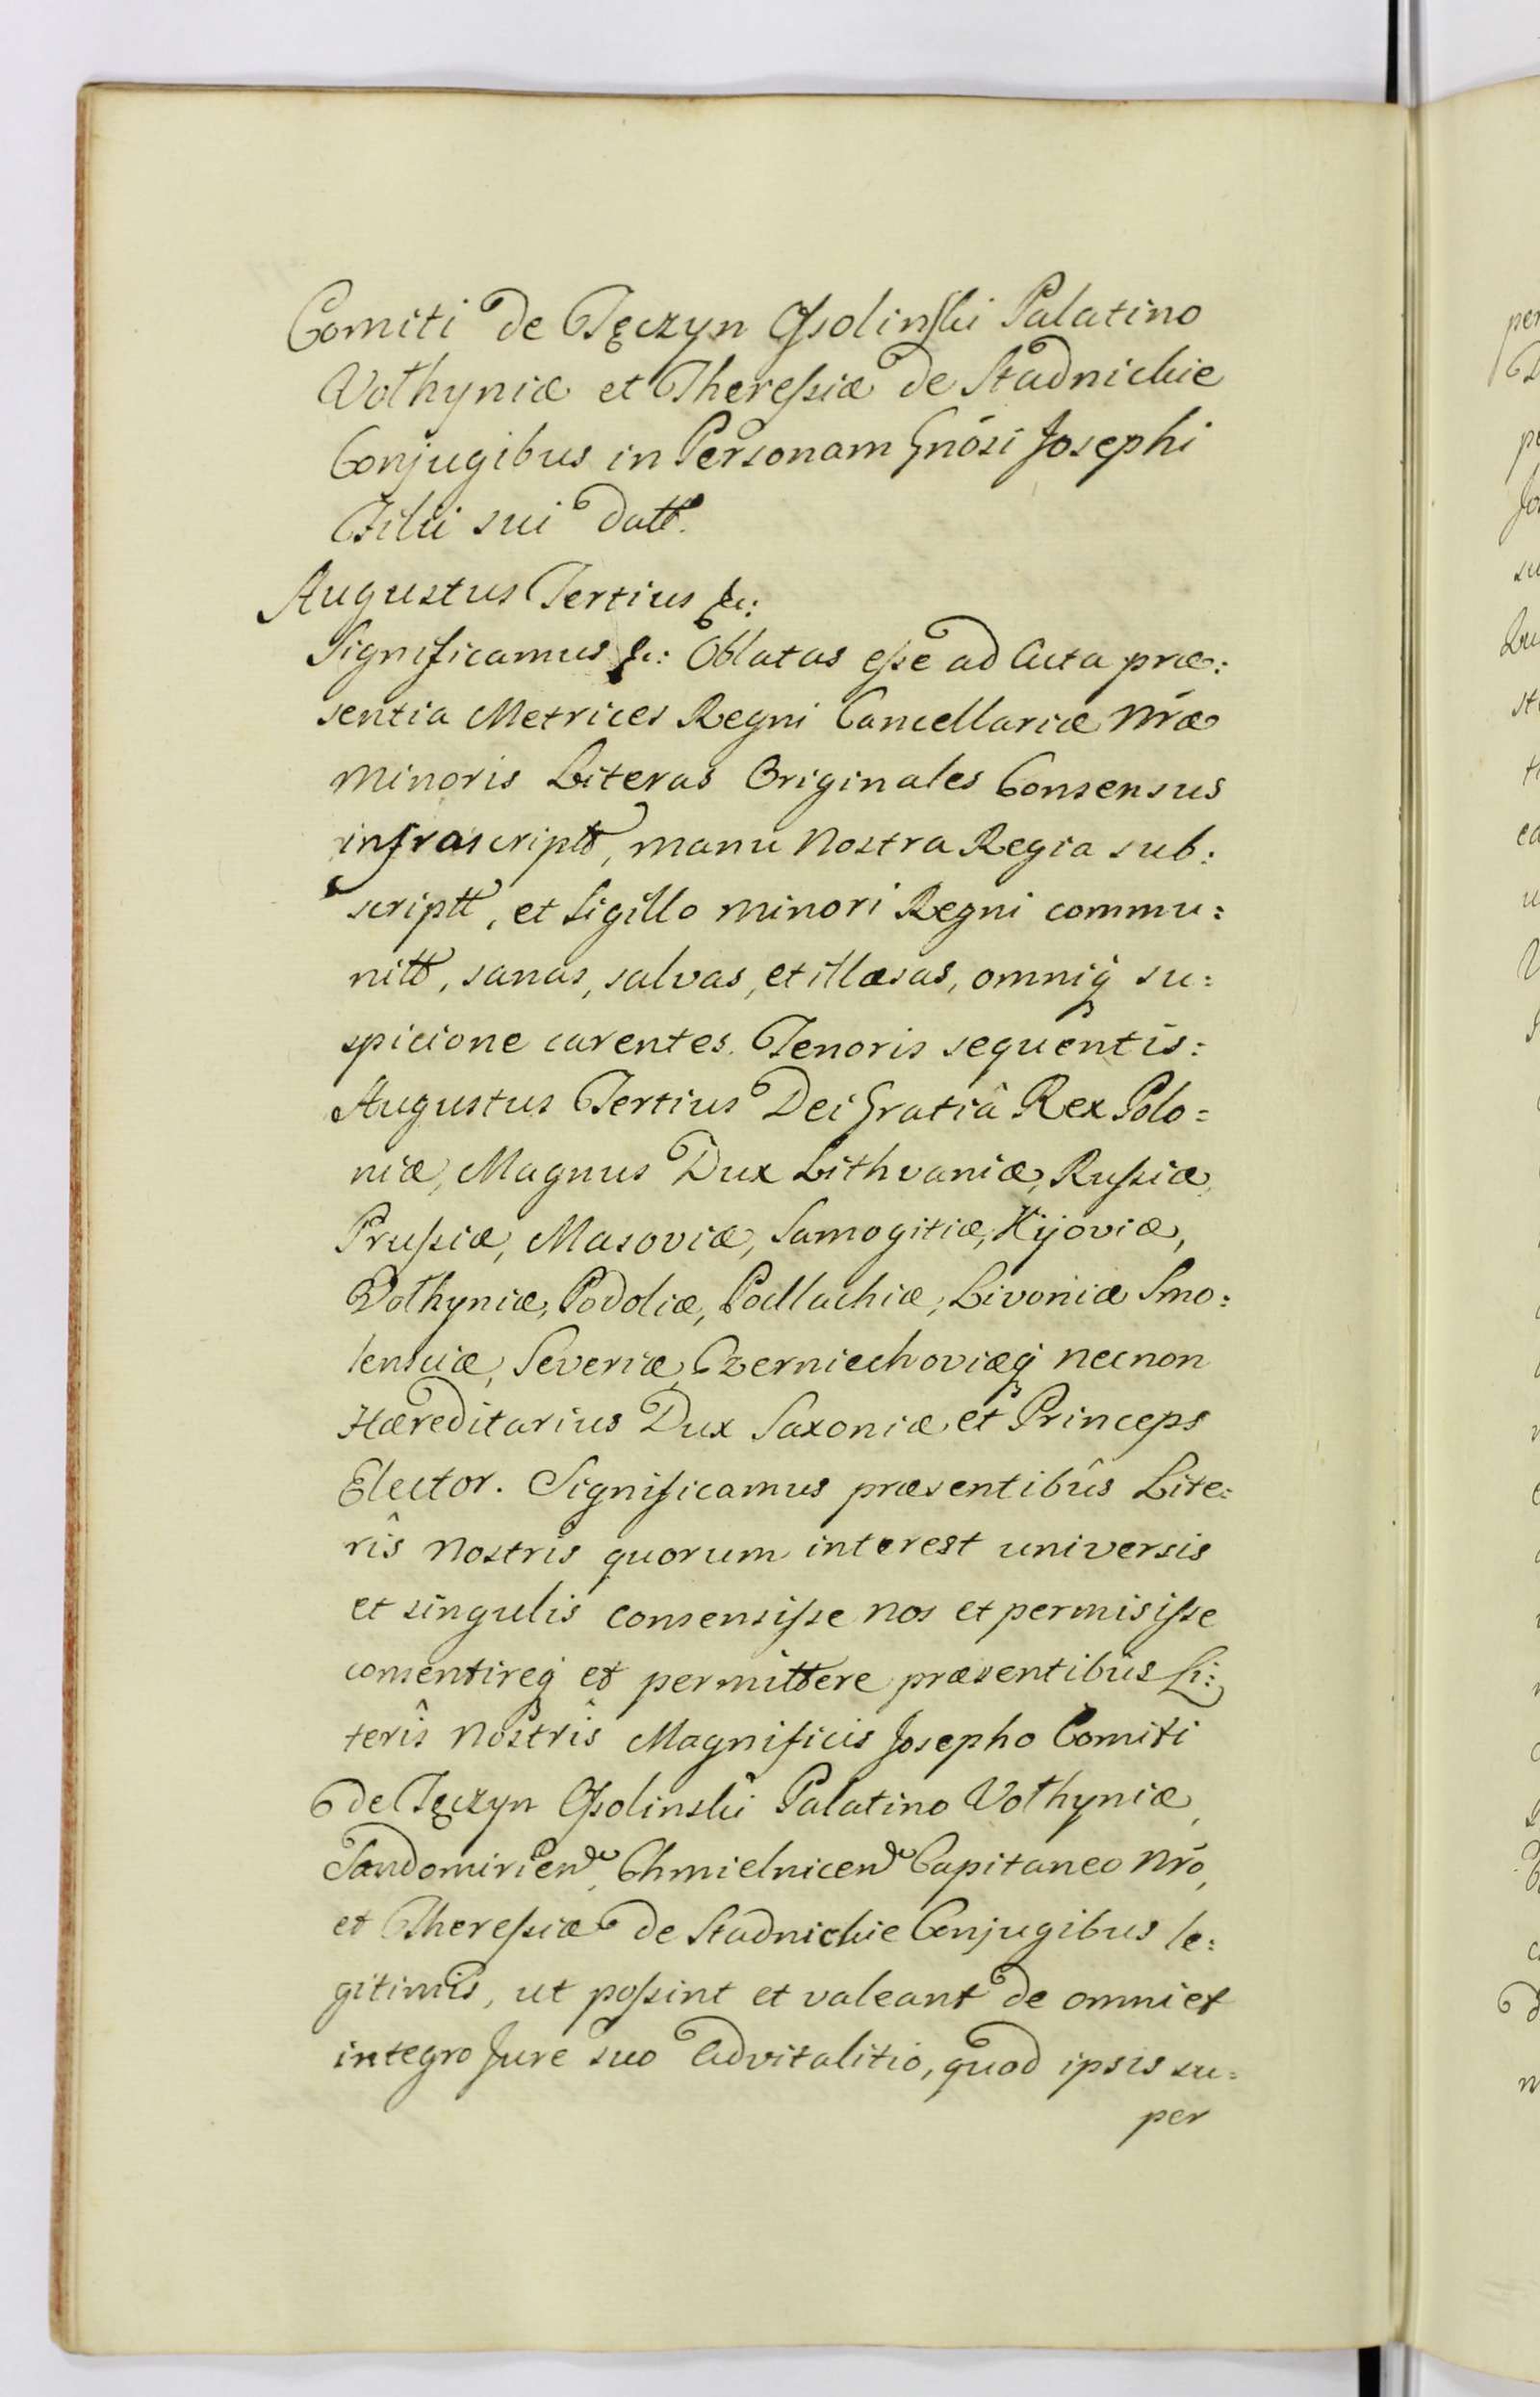 Comiti de Tęczyn Ossolinski Palatino
Volhyniæ et Theressiæ de Stadnickie
Conjugibus in Personam Gnosi Josephi
Filii sui datt.
Augustus Tertius &c:
Significamus &c: Oblatas esse ad Acta præ:
sentia Metrices Regni Cancellariæ Nræ
Minoris Literas Originales Consensus
infrascriptt, manu Nostra Regia sub:
scriptt, et Sigillo minori Regni commu:
nitt, sanas, salvas, et illæsas, omniq su:
spicione carentes. Tenoris sequentis:
Augustus Tertius Dei Gratiâ Rex Polo=
niæ, Magnus Dux Lithvaniæ, Russiæ,
Prussiæ, Masoviæ, Samogitiæ, Kijoviæ,
Volhyniæ, Podoliæ, Podlachiæ, Livoniæ Smo:
lensciæ, Severiæ, Czerniechoviæq necnon
Hæreditarius Dux Saxoniæ et Princeps
Elector. Significamus præsentibûs Lite:
rîs Nostris quorum interest universis
et singulis consensisse nos et permisisse
consentireq et permittere præsentibûs Li:
terîs Nostrîs Magnificis Josepho Comiti
de Tęczyn Ossolinski Palatino Volhyniæ,
Sandomirien, Chmielnicen Capitaneo Nro,
et Theressiæ de Stadnickie Conjugibus le:
gitimis, ut possint et valeant de omni et
integro Jure suo Advitalitio, quod ipsis su=
per